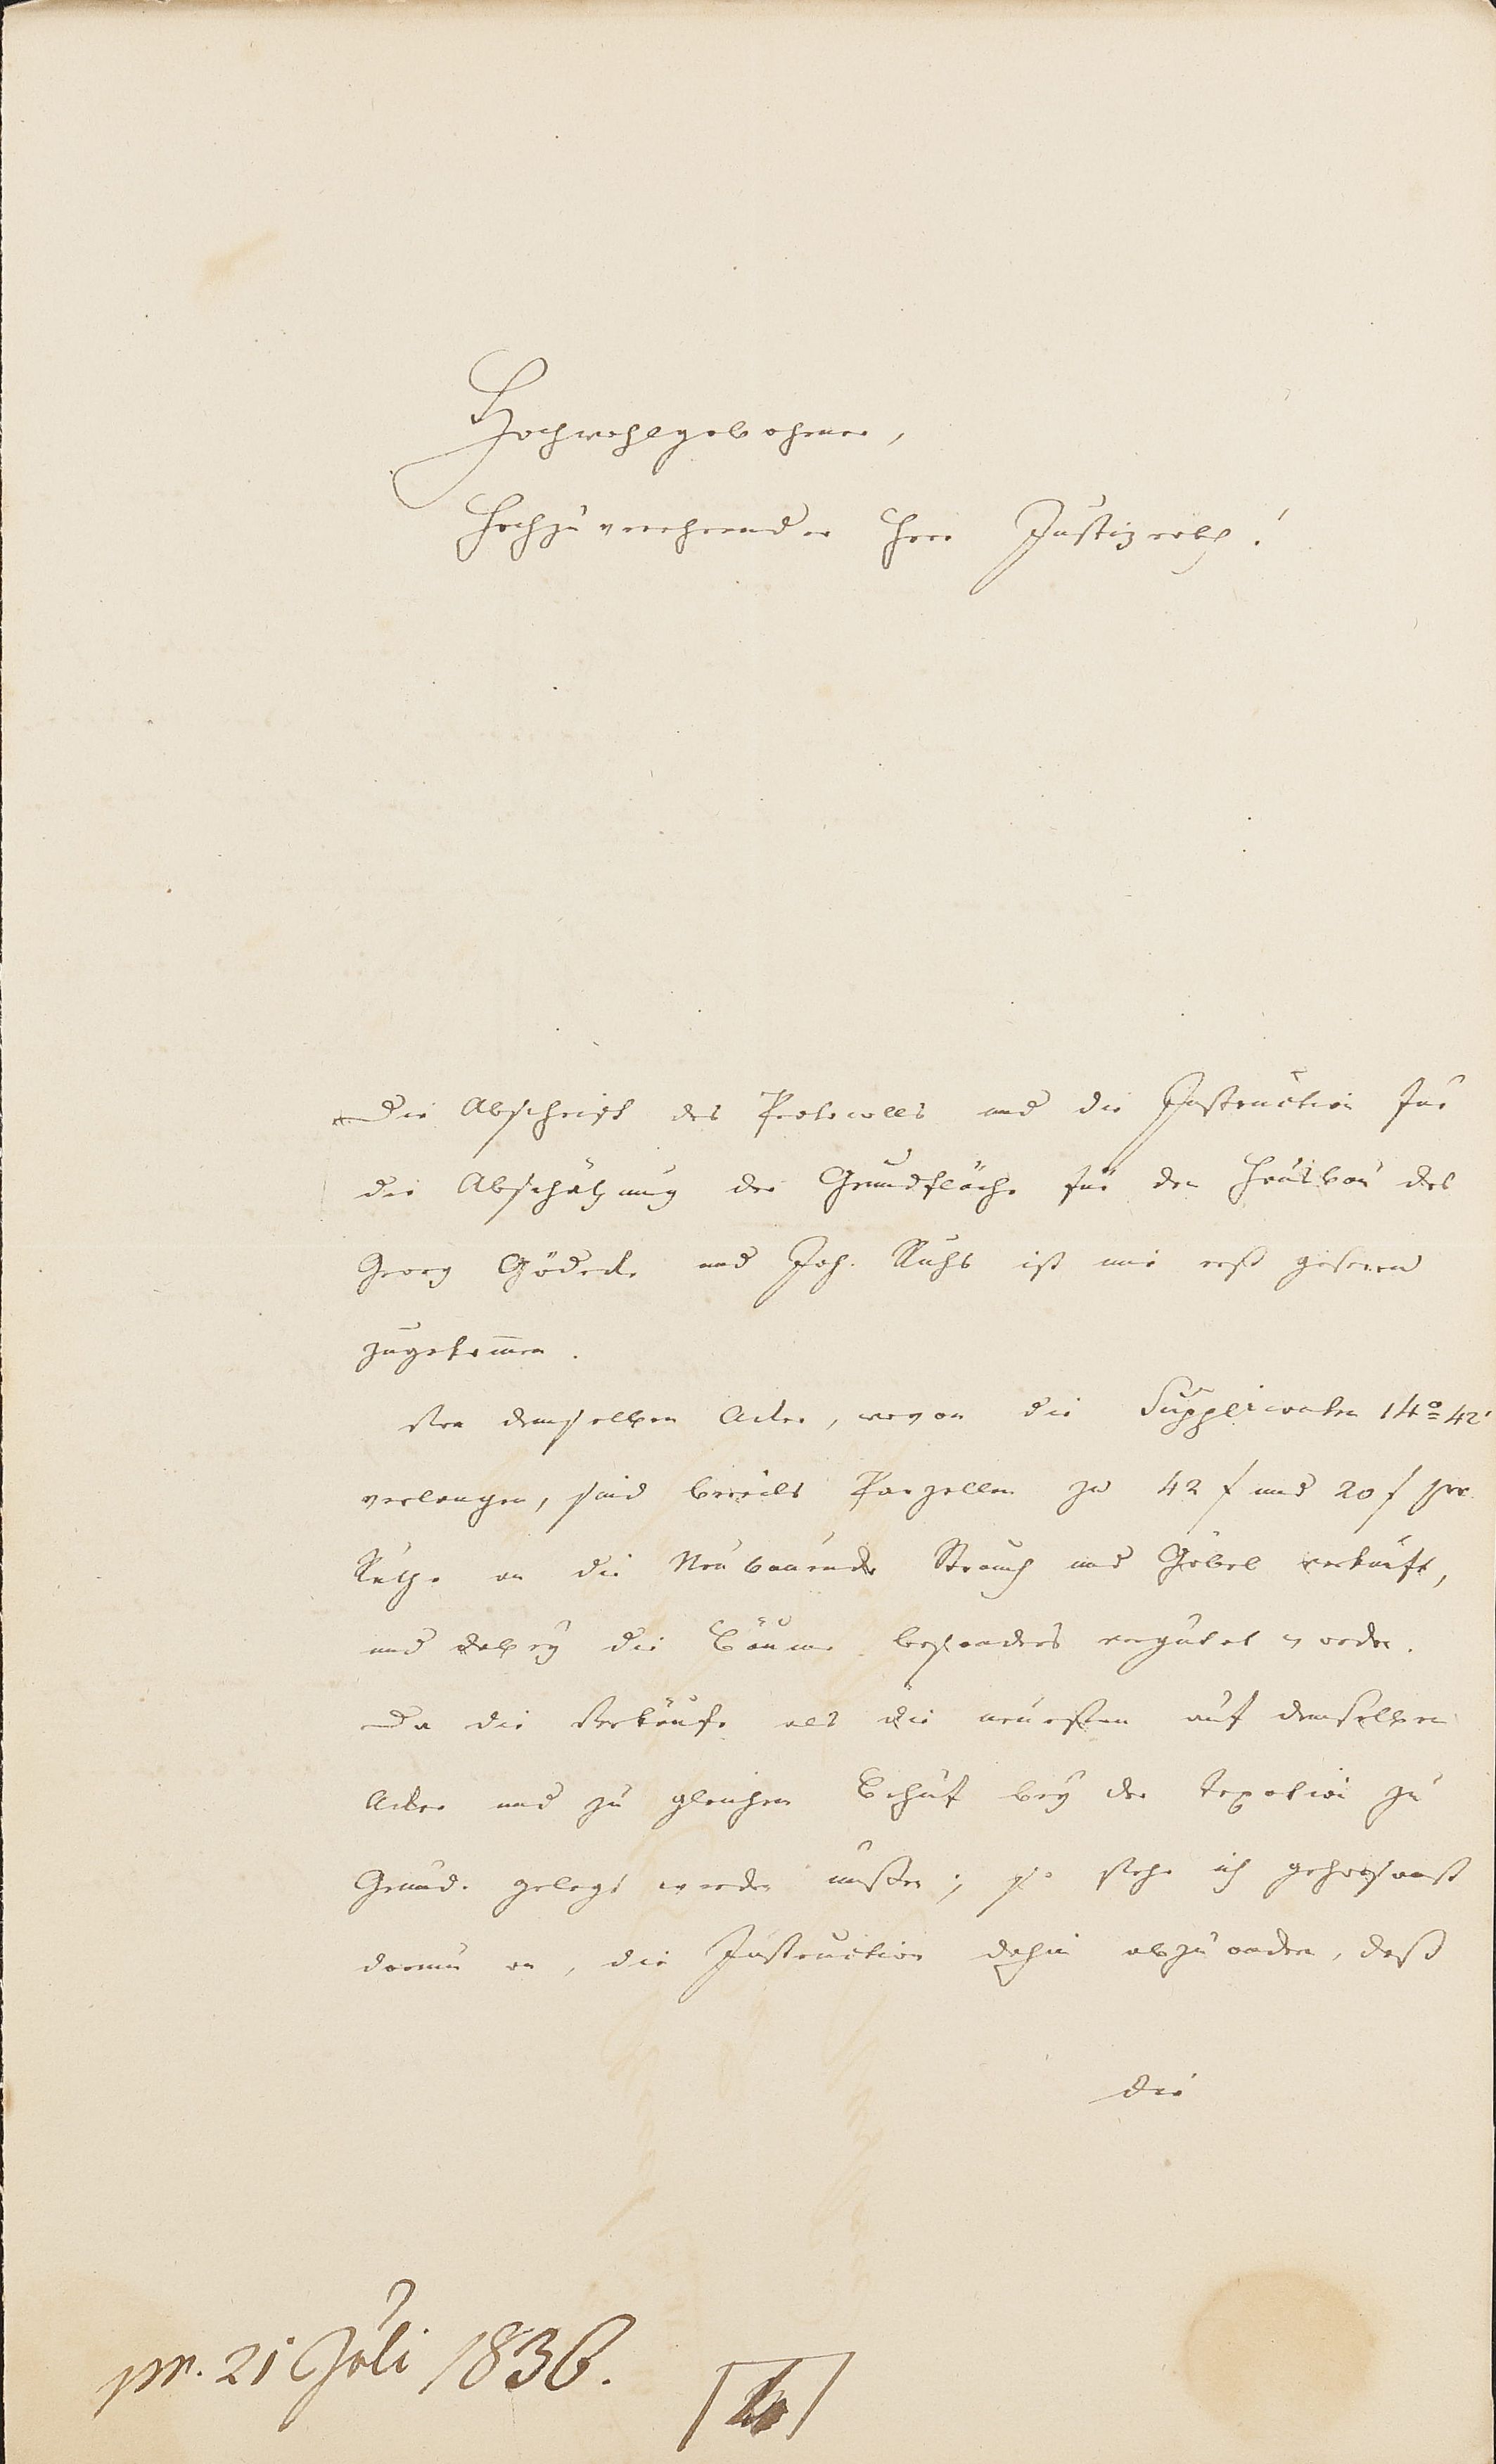 Hochwohlgebohrner,
Hochzuverehrender Herr Justizrath!
Die Abschrift des Protocolls und die Instruction für
die Abschätzung der Grundfläche für den Hausbau des
Georg Gödecke und Joh. Kuhs ist mir erst gestern
zugekom̅en.
Von demselben Acker, wovon die Supplicanten 14° 42'
verlangen, sind bereits Parzellen zu 42 f und 20 f per
Ruthe an die Neubauende Strauch und Göbel verkauft,
und dabey die Bäume besonders vergütet worden.
Da die Verkäufe als die neuesten auf demselben
Acker und zu gleichem Behuf bey der Taxation zu
Grunde gelegt werden müssen; so stehe ich gehorsamst
darum an, die Instruction dahin abzuändern, daß
die
pr. 21 Juli 1836.